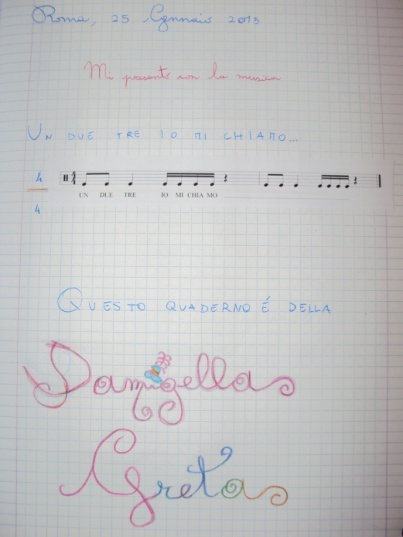 Roma, 25 Gennaio 2013
Mi presento con la musica
UN DUE TRE IO MI CHIAMO...
4
4
UN DUE TRE IO MI CHIA MO
QUESTO QUADERNO É DELLA
Damigella
Greta